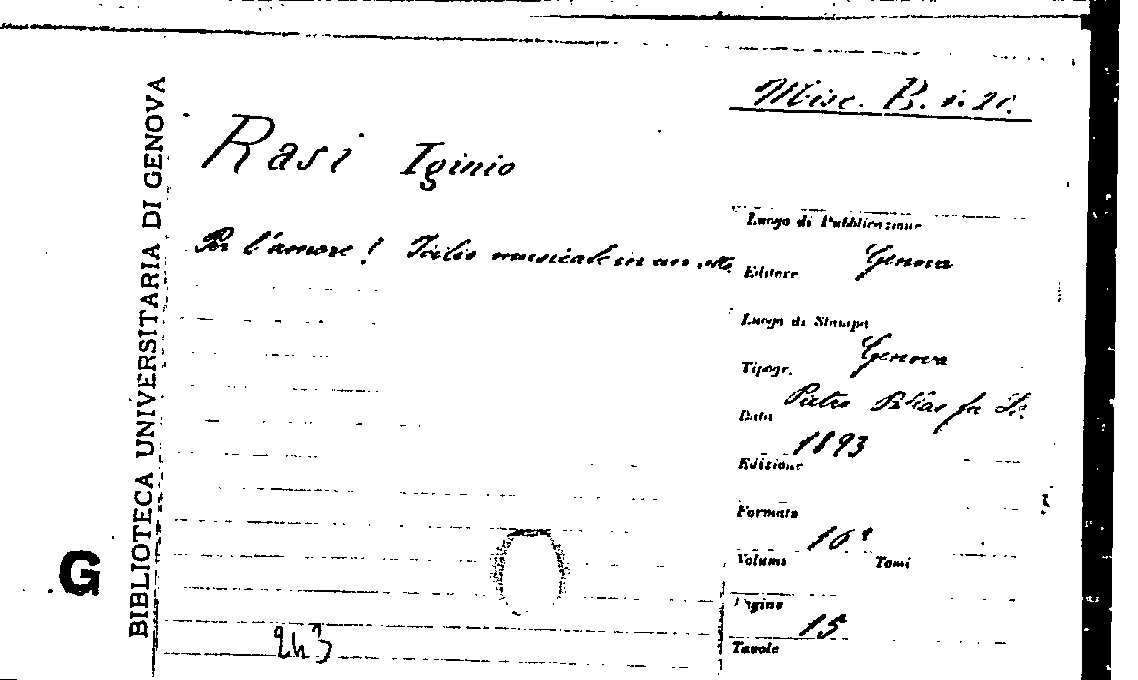 BIBLIOTECA UNIVERSITARIA DI GENOVA
G
Misc. B.
Rasi Iginio
Per l'amore! Idilio musicale in un atto
Luogo di Pubblicazione
Genova
Editore
Luogo di Stampa
Genova
Tipogr.
Pietro fu
Data
1893
Edizione
Formato
16°
Volumi Tomi
Pagine
15
Tavole
243